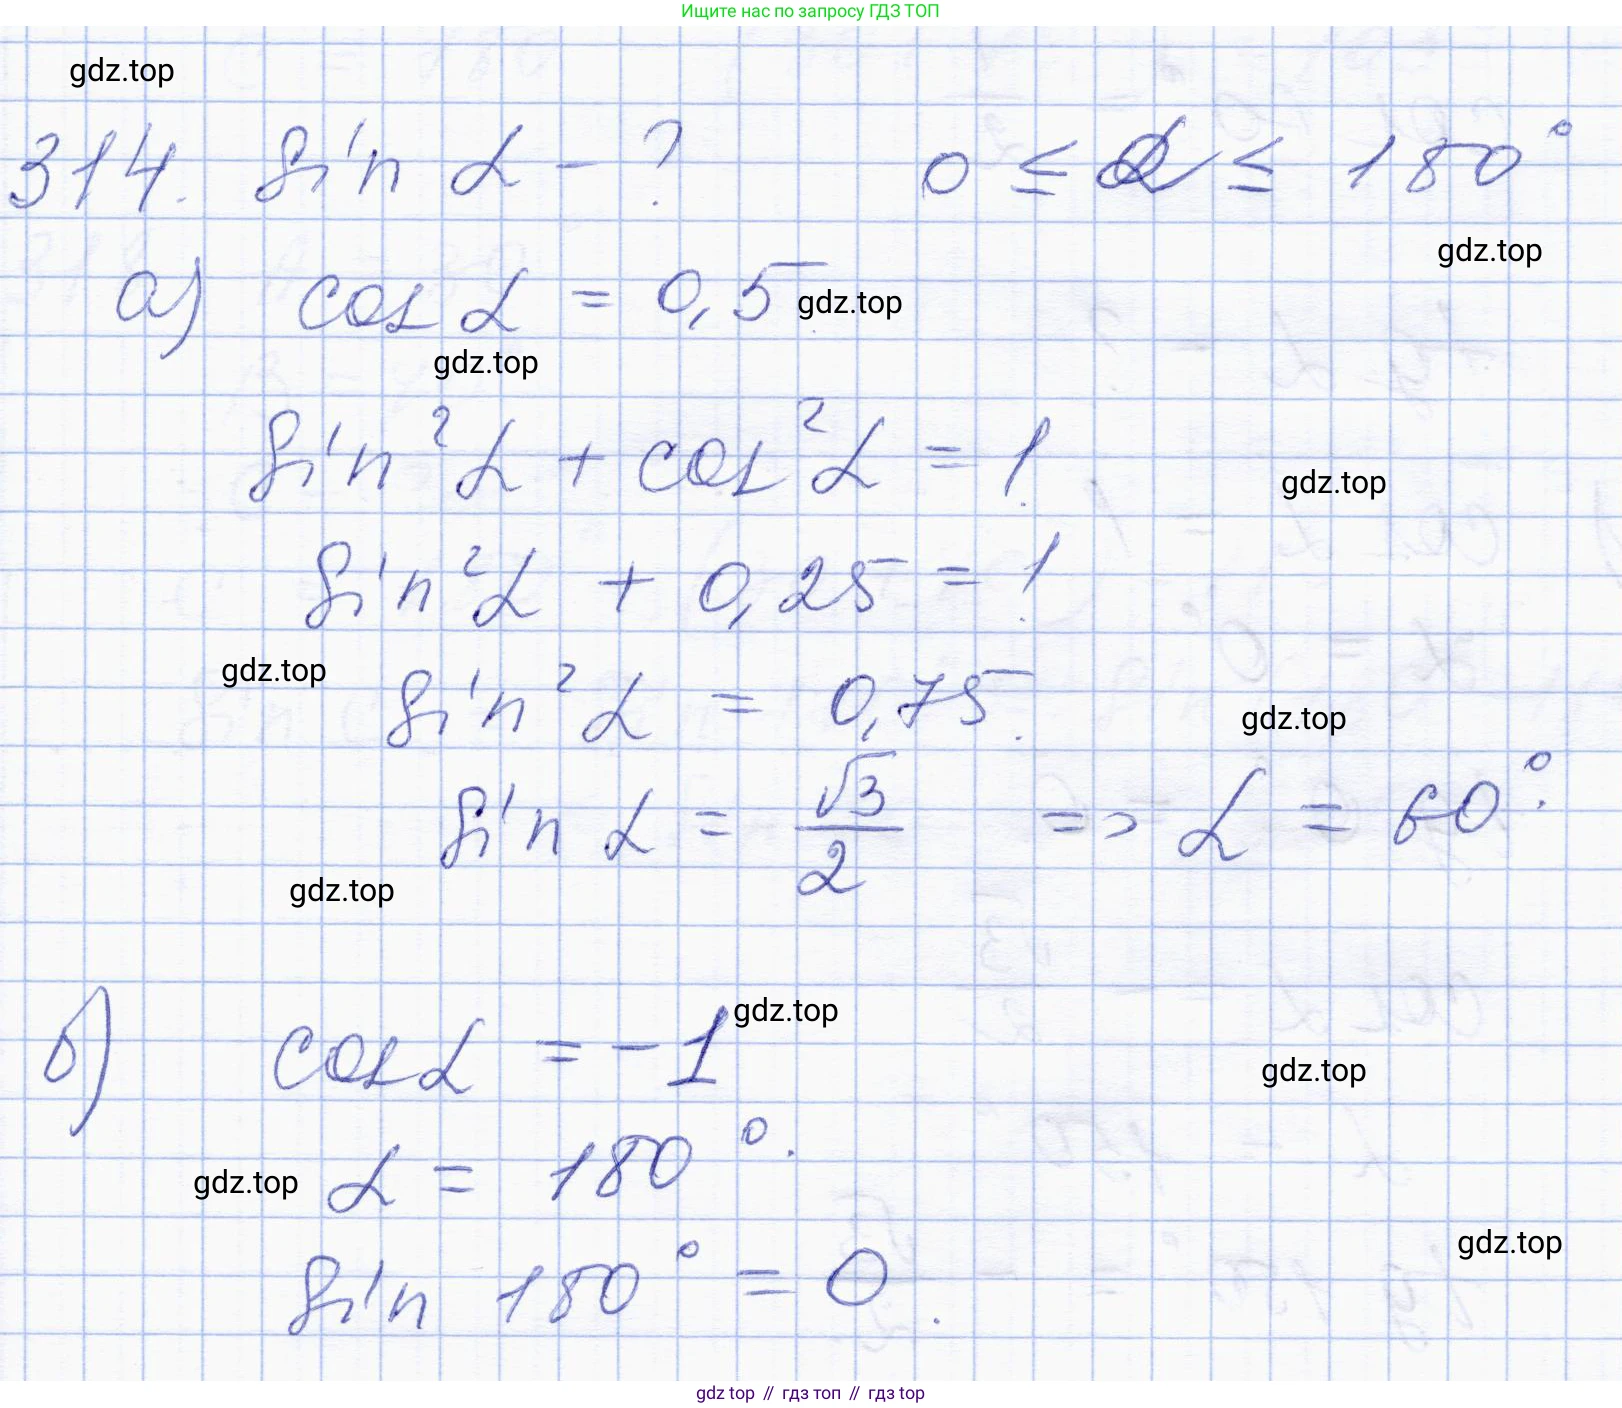 Ищите нас по запросу ГДЗ ТОП
gdz.top
314. sin α - ? 0 ≤ α ≤ 180°
gdz.top
а) cos α = 0,5
gdz.top
gdz.top
sin² α + cos² α = 1.
gdz.top
sin² α + 0,25 = 1.
gdz.top
sin² α = 0,75.
gdz.top
sin α = √3/2 => α = 60°.
gdz.top
gdz.top
б) cos α = -1
gdz.top
α = 180°.
gdz.top
gdz.top
sin 180° = 0.
gdz top // гдз топ // гдз top